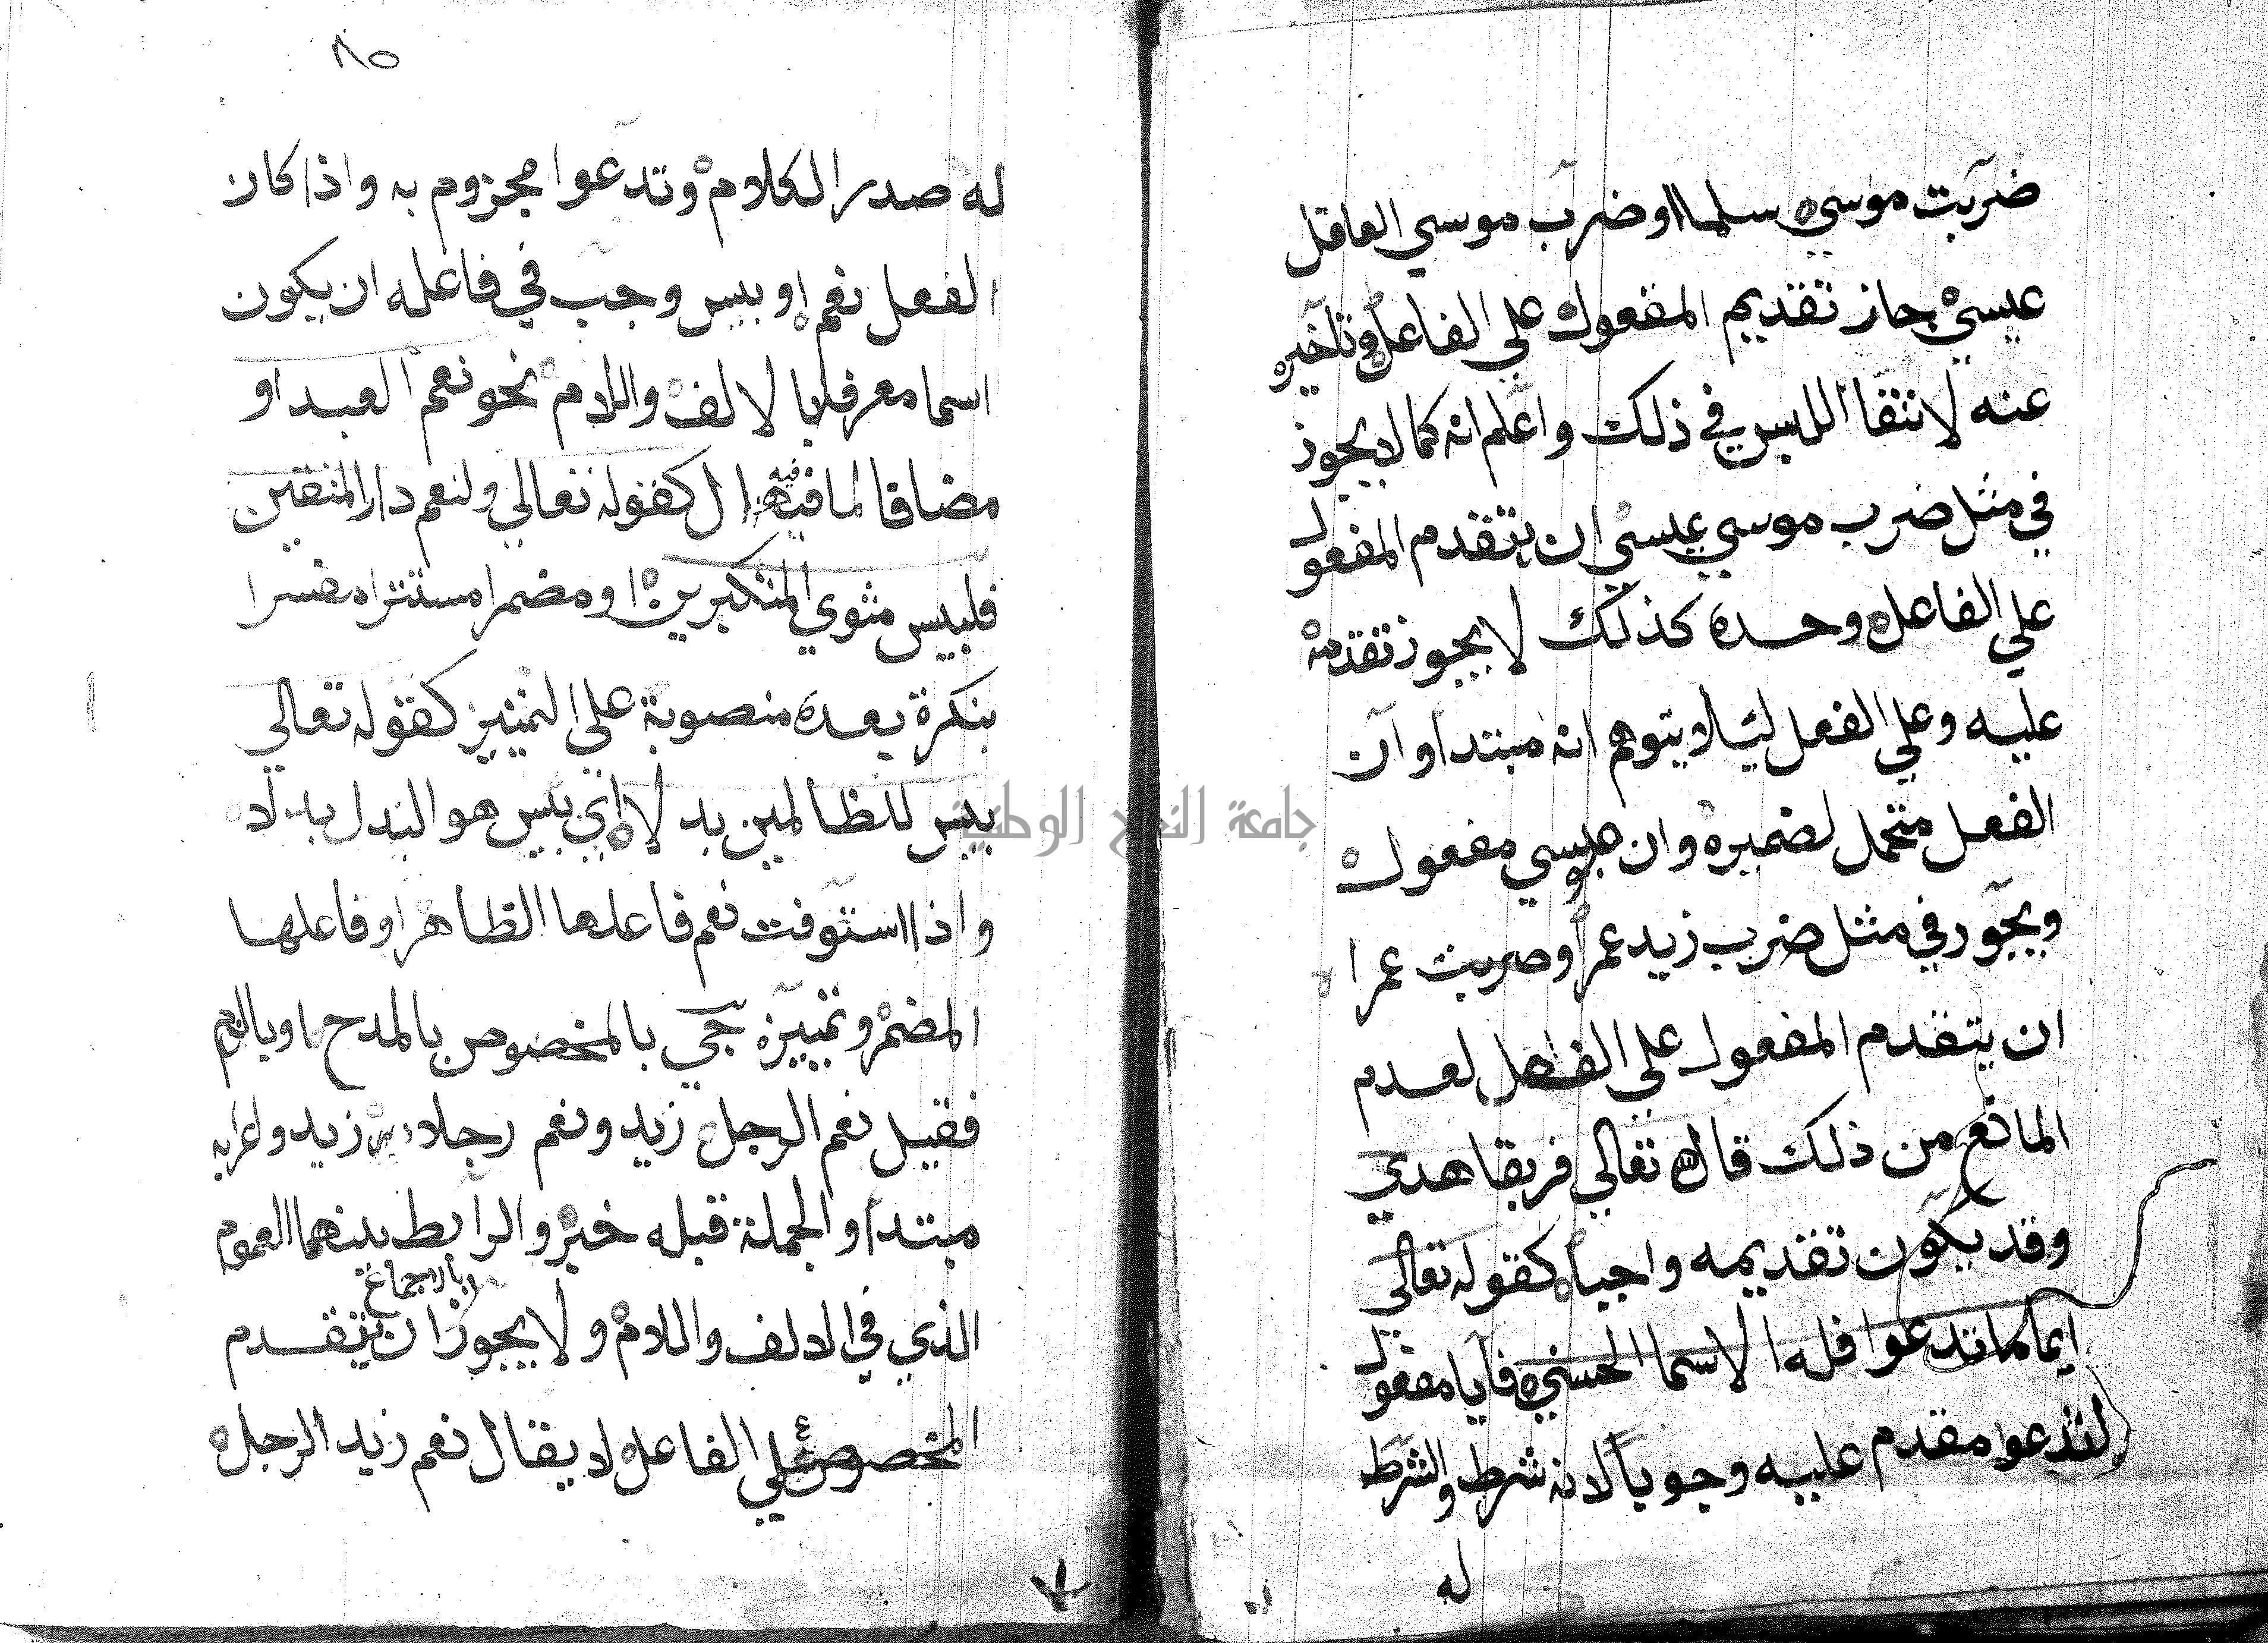 ضربت موسي سلما او ضرب موسي العاقل
عيسي جاز تقديم المفعول علي الفاعل وتاخيره
عنه لانتفا اللبس في ذلك واعلم انه كما لا يجوز
في مثل ضرب موسي عيسي ان يتقدم المفعول
علي الفاعل وحده كذلك لا يجوز تقدمه
عليه وعلي الفعل ليلا يتوهم انه مبتدا وان
الفعل متحمل لضميره وان موسي مفعول
ويجوز في مثل ضرب زيد عمرا وضربت عمرا
ان يتقدم المفعول علي الفعل لعدم
المانع من ذلك قال الله تعالي فريقا هدي
وقد يكون تقديمه واجبا كقوله تعالي
ايا ما تدعوا فله الاسما الحسني فايا مفعول
لتدعوا مقدم عليه وجوبا لانه شرط والشرط
له
٨٥
له صدر الكلام وتدعوا مجزوم به واذا كان
الفعل نعم او بيس وجب في فاعله ان يكون
اسما معرفا بالالف واللام نحو نعم العبد او
مضافا لما فيه ال كقوله تعالي ولنعم دار المتقين
فلبيس مثوي المتكبرين او مضمرا مستترا مفسرا
بنكرة بعده منصوبة علي التمييز كقوله تعالي
بيس للظالمين بدلا اي بيس هو البدل بدلا
واذا استوفت نعم فاعلها الظاهر او فاعلها
المضمر وتمييزه جي بالمخصوص بالمدح او بالذم
فقيل نعم الرجل زيد ونعم رجلا زيد واعرابه
مبتدا والجملة قبله خبر والرابط بينهما العموم
الذي في الالف واللام ولا يجوز بالاجماع ان يتقدم
المخصوص علي الفاعل لا يقال نعم زيد الرجل
جامعة النجاح الوطنية